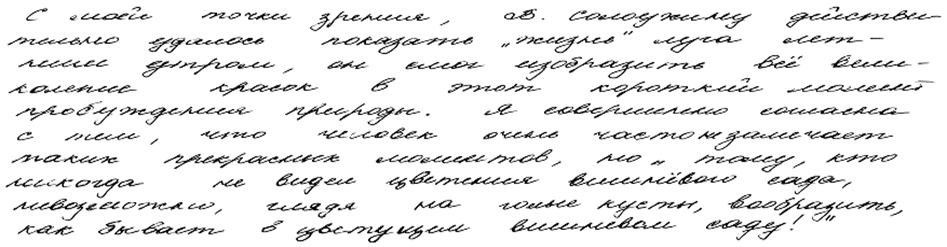 С моей точки зрения, В. Солоухину действи-
тельно удалось показать „жизнь" луга лет-
ним утром, он смог изобразить всё вели-
коление красок в этот короткий момент
пробуждения природы. Я совершенно согласна
с тем, что человек очень часто незамечает
таких прекрасных моментов, но „ тому, кто
никогда не видел цветения вишнёвого сада,
невозможно, глядя на голые кусты, вообразить,
как бывает в цветущем вишневом саду!"